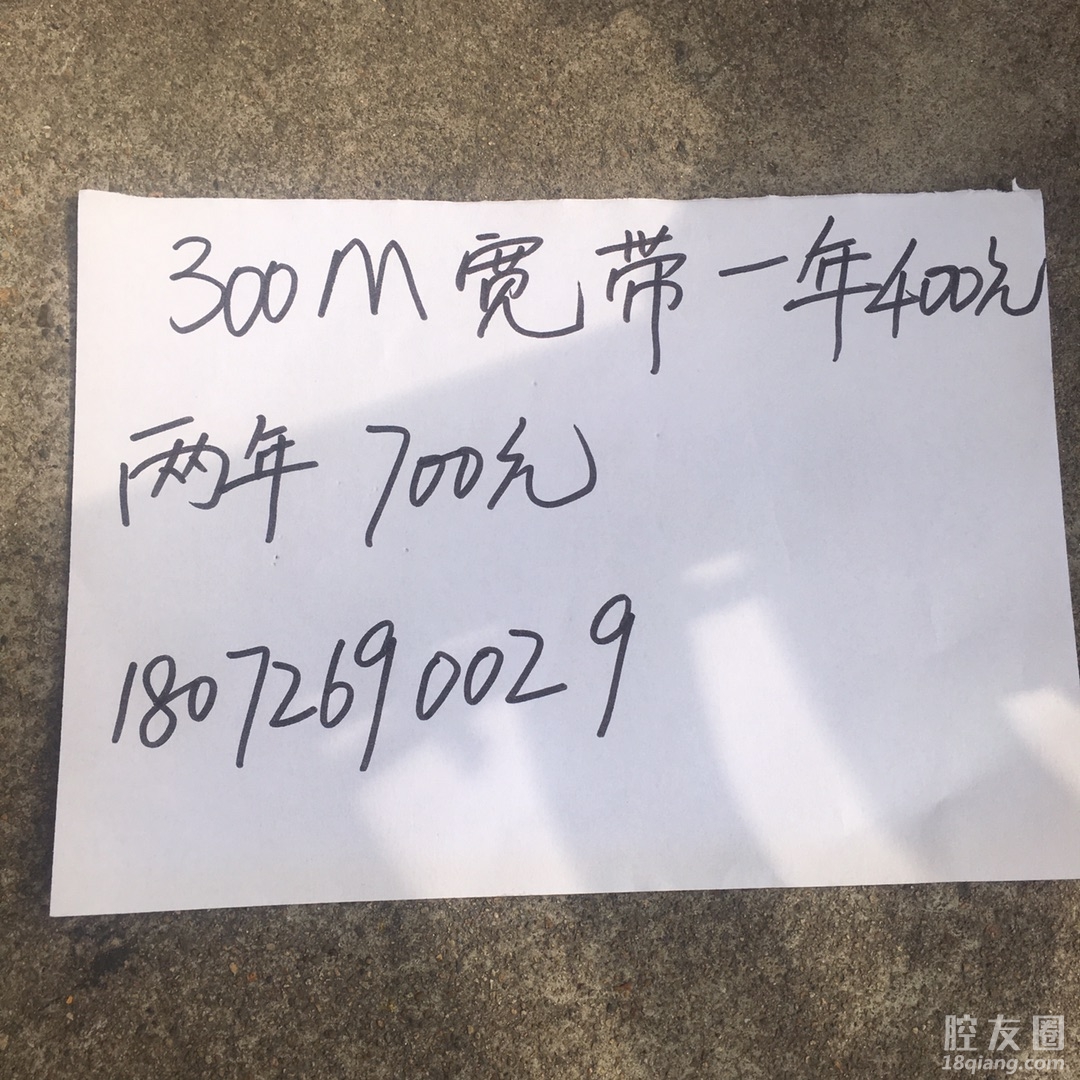 300M宽带一年400元
两年 700元
18072690029
腔友圈
18qiang.com